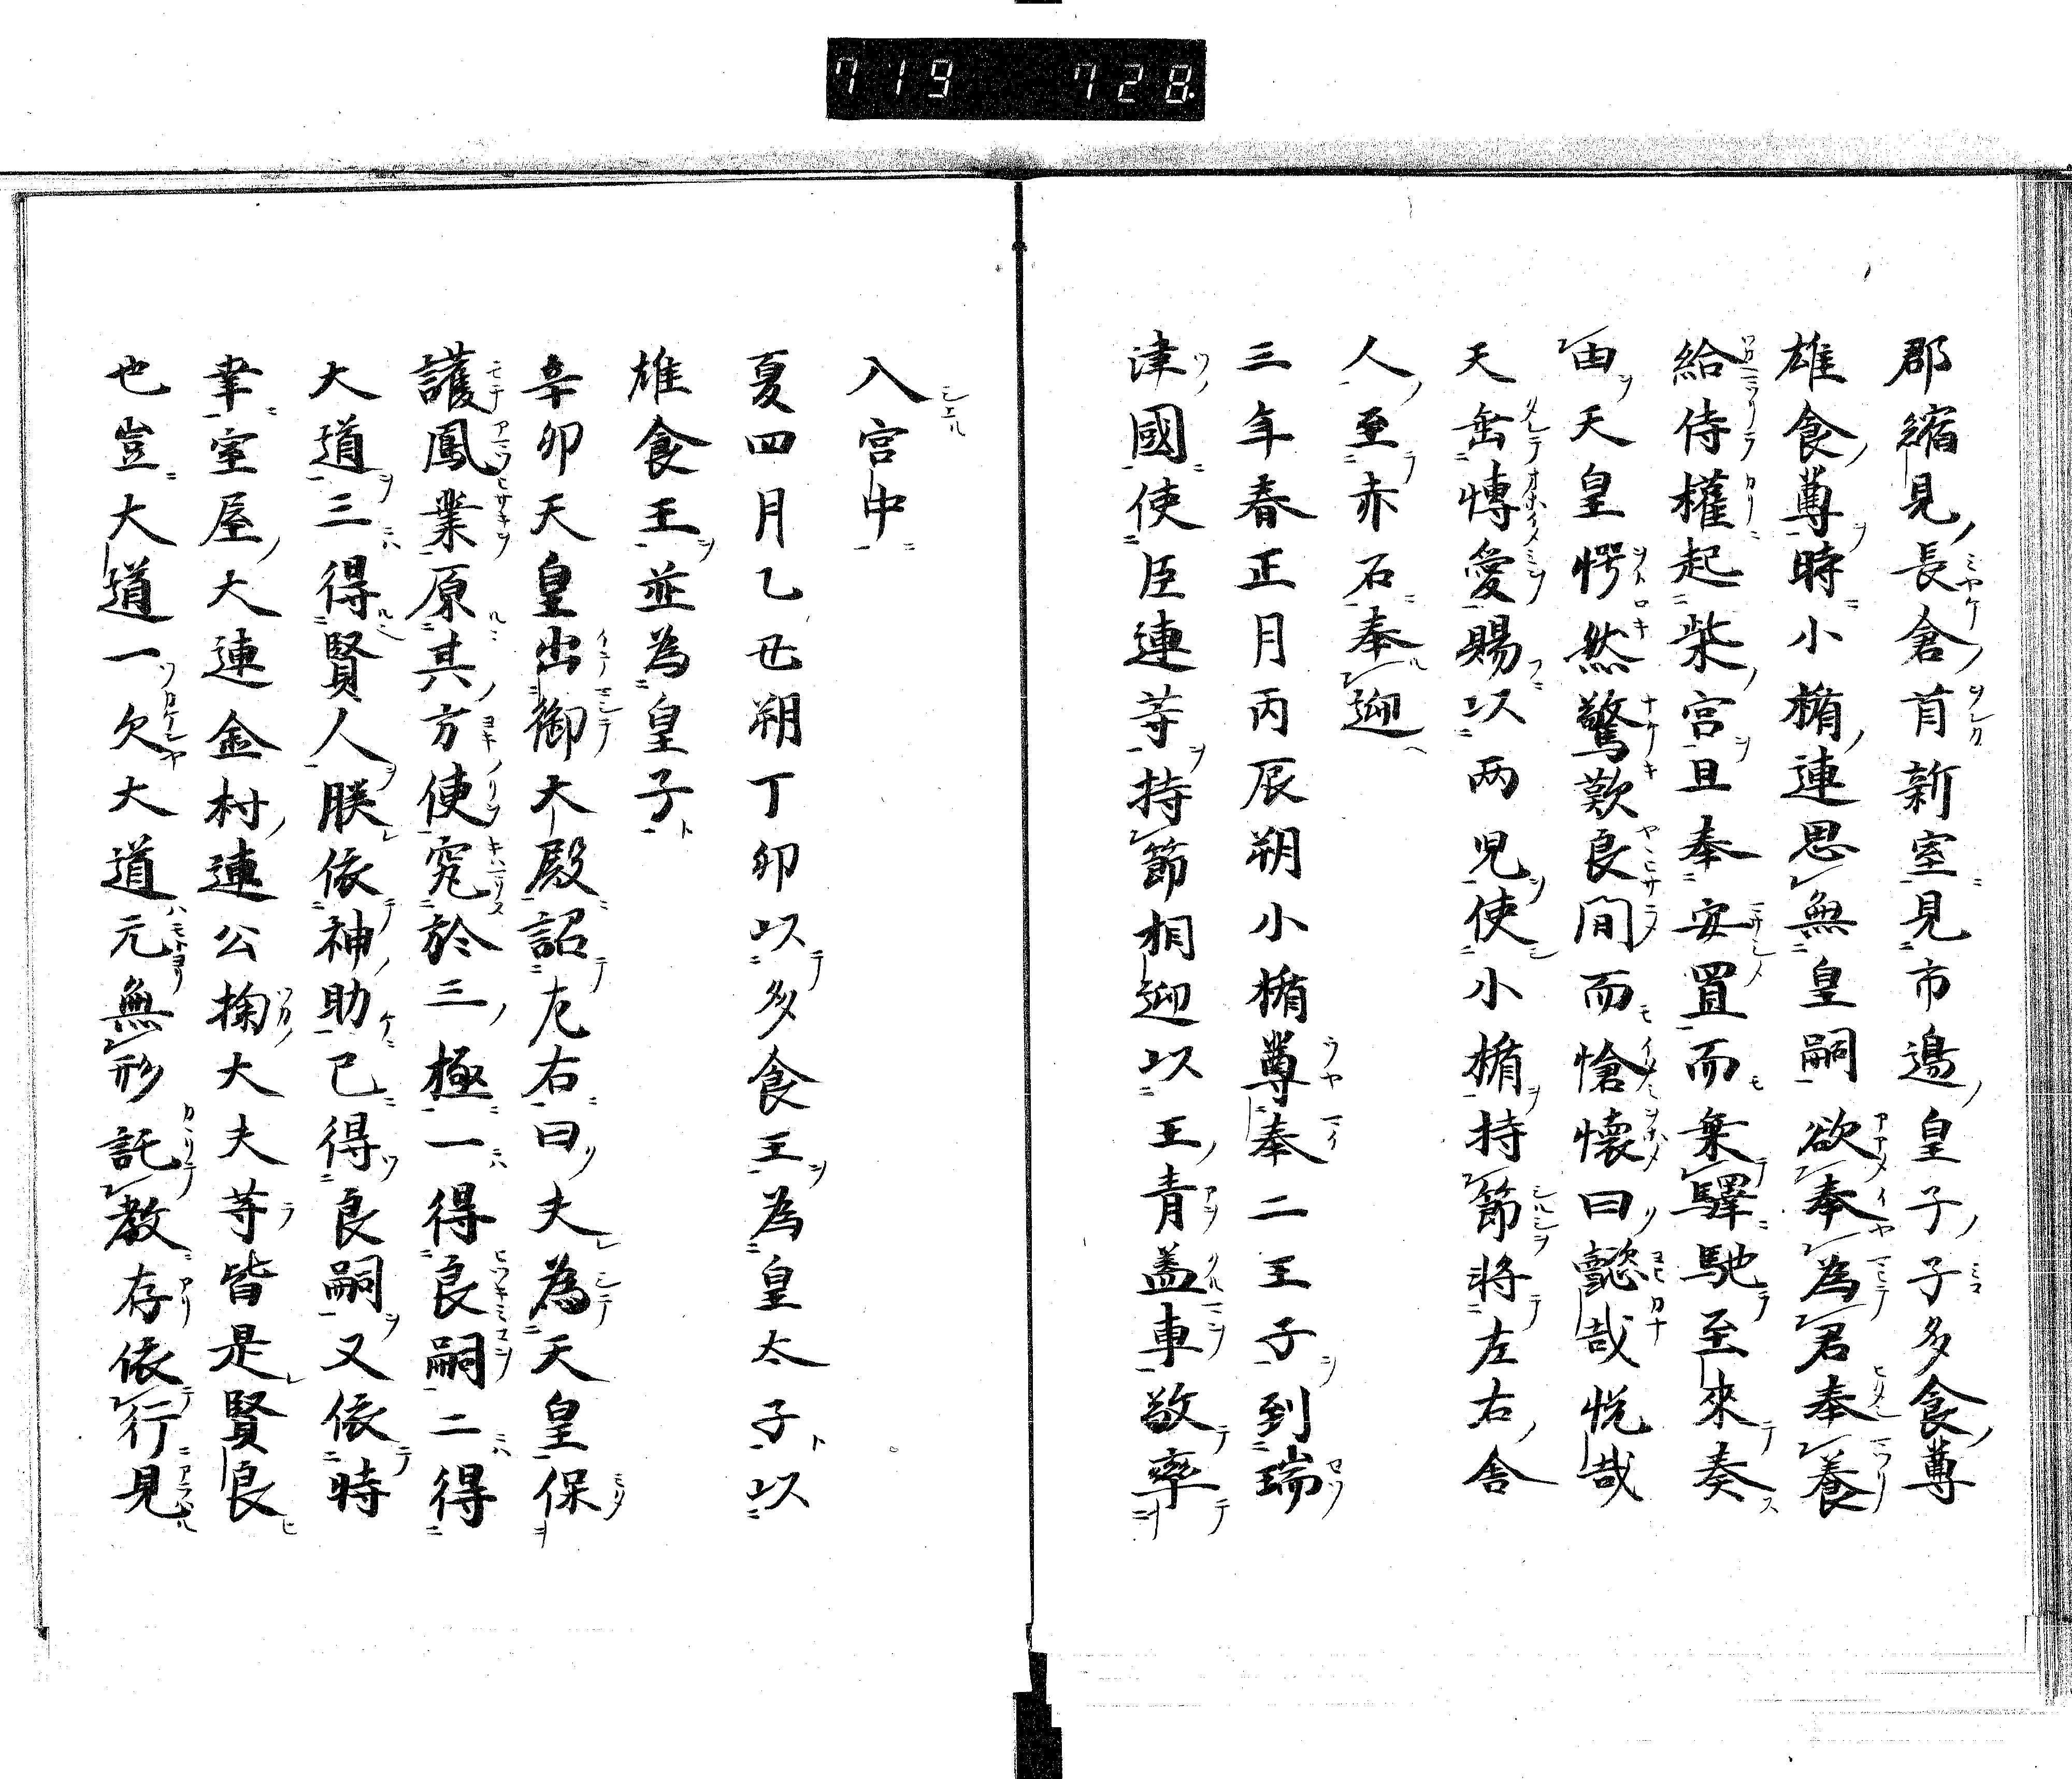 719 728.
郡縮見長倉首新室見市邊皇子子多食尊
雄食尊時小楯連思無皇嗣欲奉為君奉養
給侍權起柴宮且奉安置而乗驛馳至來奏
由天皇愕然驚歎良間而愴懷曰懿哉悦哉
天缶愽愛賜以两児使小楯持節将左右舎
人至赤石奉迎
三年春正月丙辰朔小楯尊奉二王子到瑞
津國使臣連等持節相迎以王青盖車敬率
入宮中
夏四月乙丑朔丁卯以多食王為皇太子以
雄食王並為皇子
辛卯天皇出御大殿詔左右曰夫為天皇保
護鳳業原其方使究於三極一得良嗣二得
大道三得賢人朕依神助已得良嗣又依時
幸室屋大連金村連公掬大夫等皆是賢良
也豈大道一欠大道元無形託教存依行見